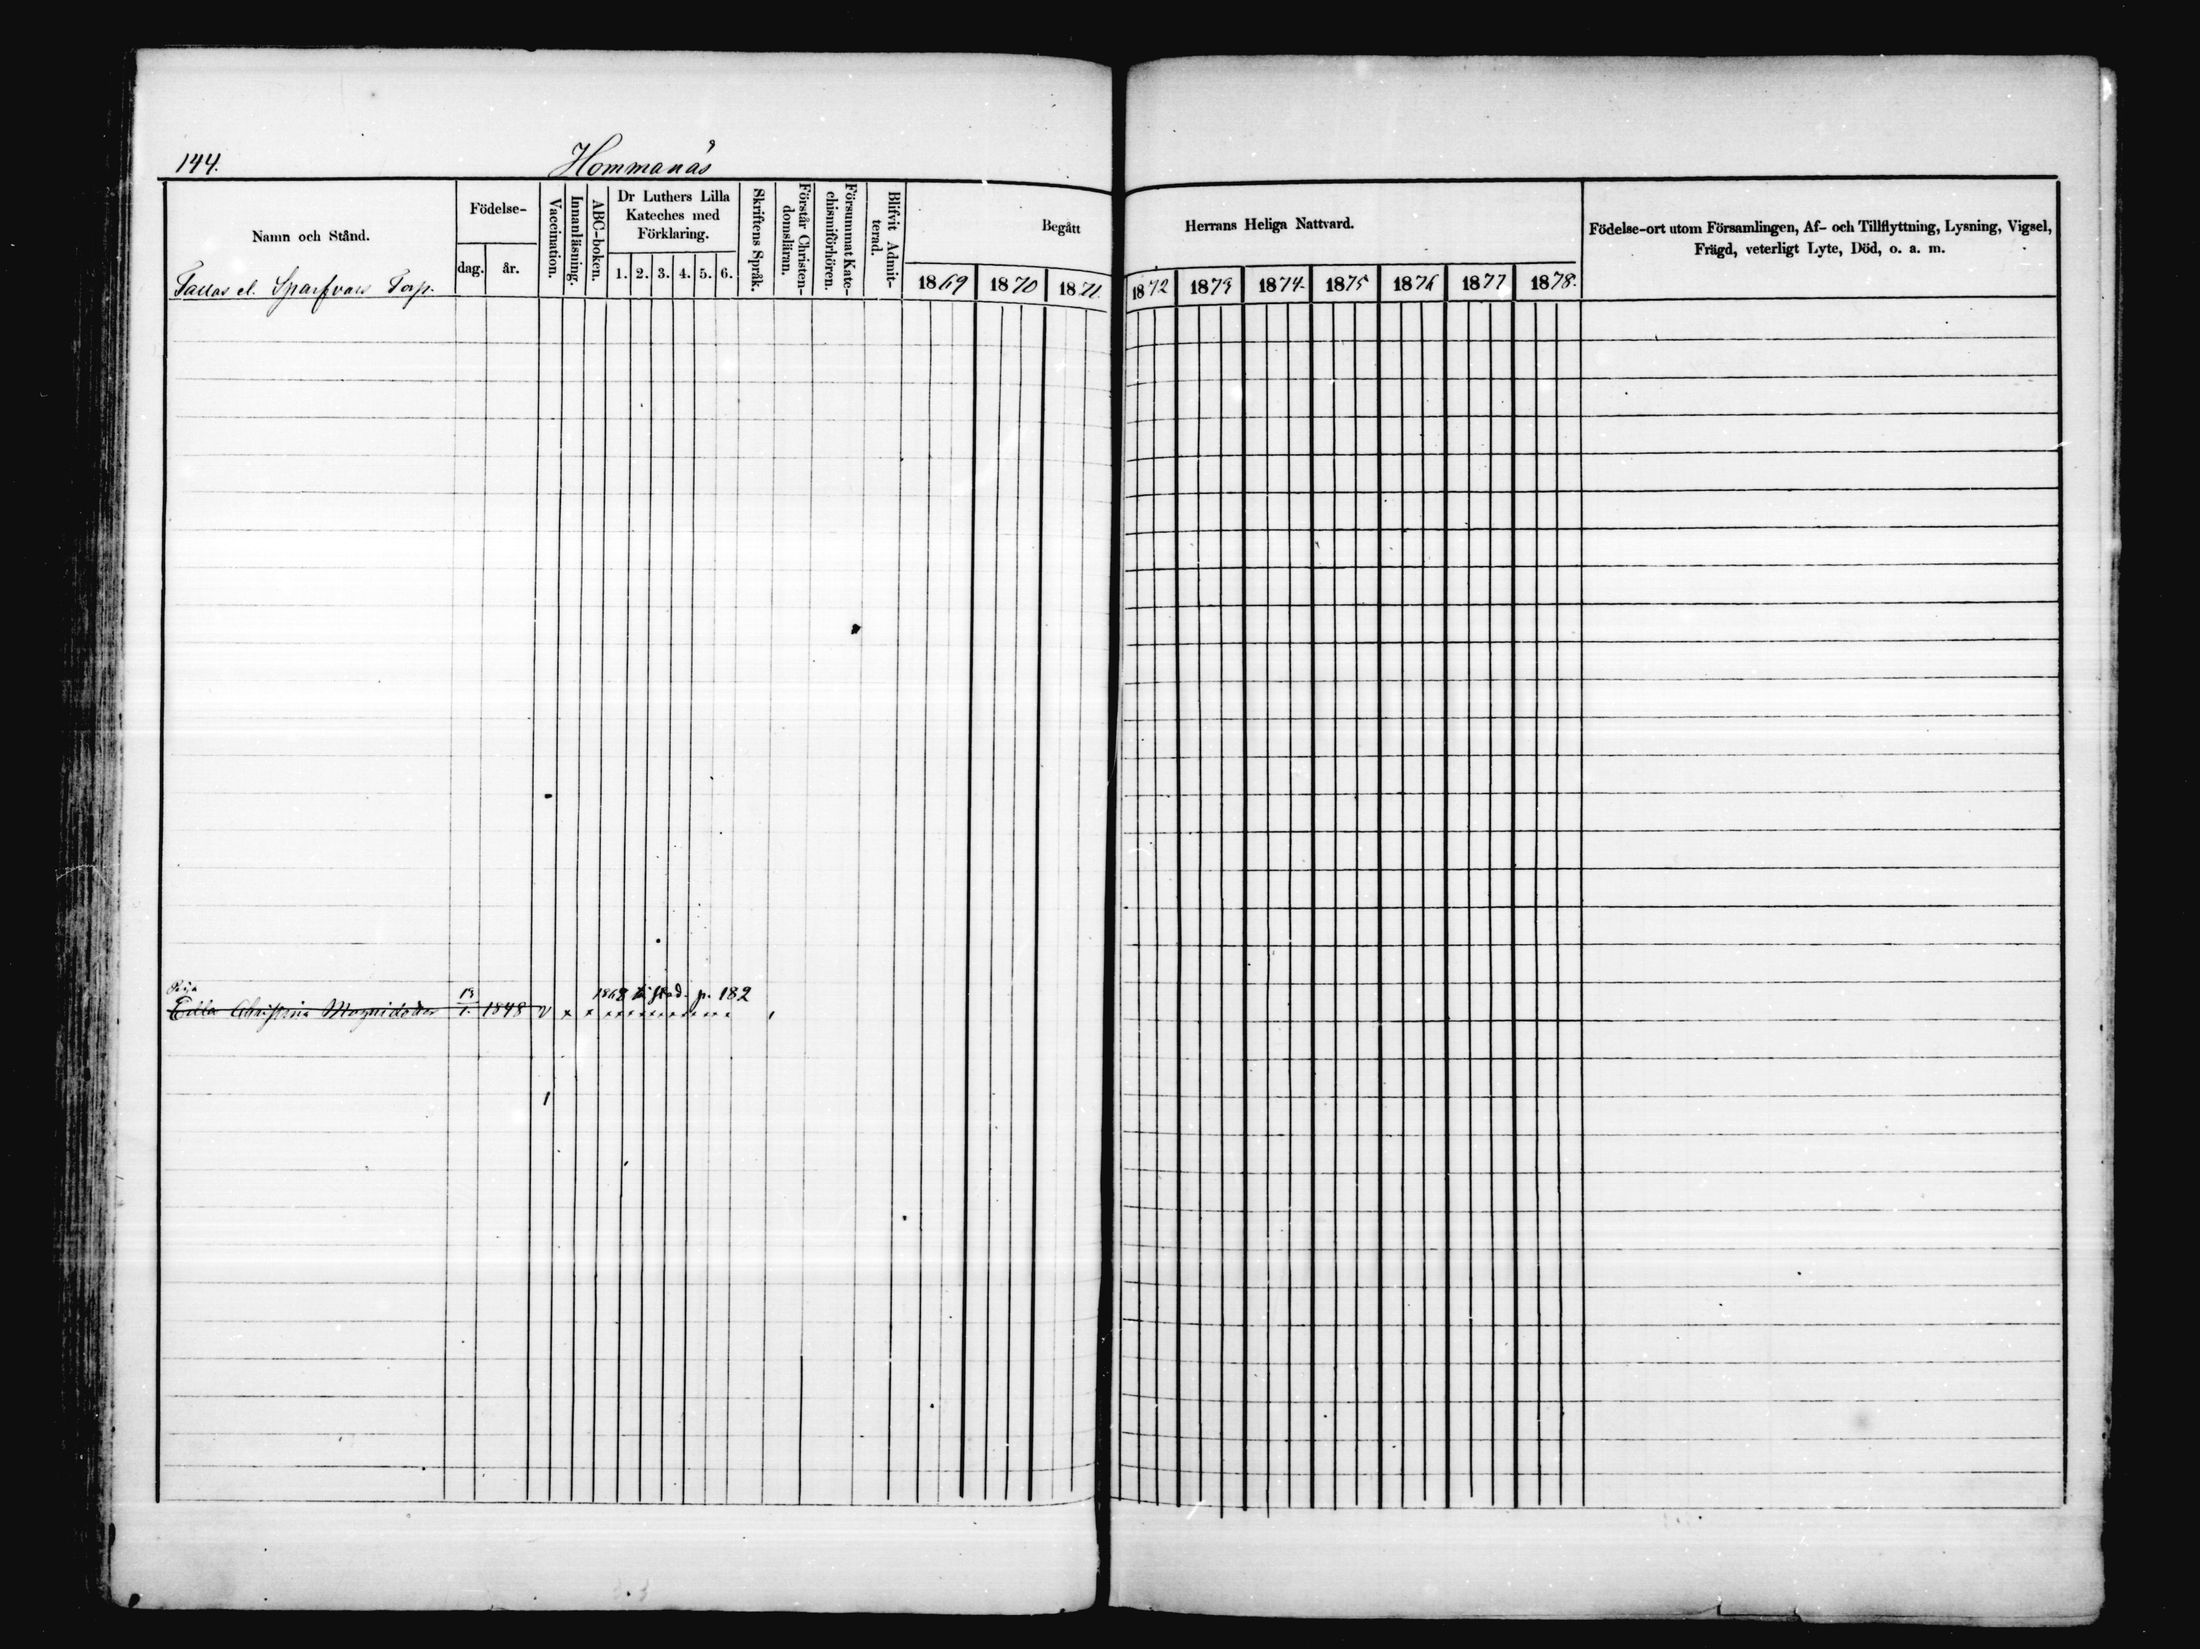 144.
Hommanäs
Namn och Stånd.
Födelse-
dag. år.
Vaccination.
Innanläsning.
ABC-boken.
Dr Luthers Lilla
Kateches med
Förklaring.
1. 2. 3. 4. 5. 6.
Skriftens Språk.
Förstår Christen-
domsläran.
Försummat Kate-
chismiförhören.
Blifvit Admit-
terad.
Begått Herrans Heliga Nattvard.
1869 1870 1871. 1872 1873 1874. 1875 1876 1877 1878.
Födelse-ort utom Församlingen, Af- och Tillflyttning, Lysning, Vigsel,
Frägd, veterligt Lyte, Död, o. a. m.
Tallas el. Sparfvars Torp.
Piga
1868 p. 182
Christina Magnidotter 1848 v x x x x x x x x x x x x x x
1